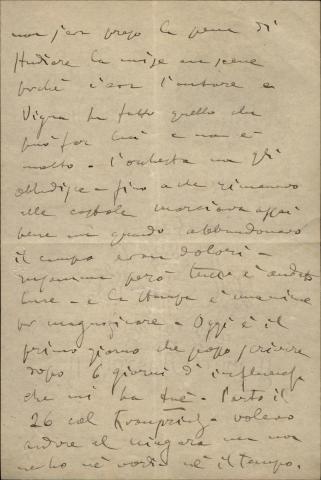 non s'era preso la pena di
studiare la mise en scène
perchè c'era l'autore e
Vigna ha fatto quello che
può far lui e non è
molto - l'orchestra non gli
ubbidisce - fino a che rimanevo
alle costole marciava assai
bene ma quando abbandonavo
il campo eran dolori -
insomma però tutto è andato
bene - e la stampa è unanime
per magnificare - Oggi è il
primo giorno che posso scrivere
dopo 6 giorni d'influenza
che mi ha
26 col Kronprinz - volevo
andare al niagara ma non
ne ho nè voglia nè il tempo.